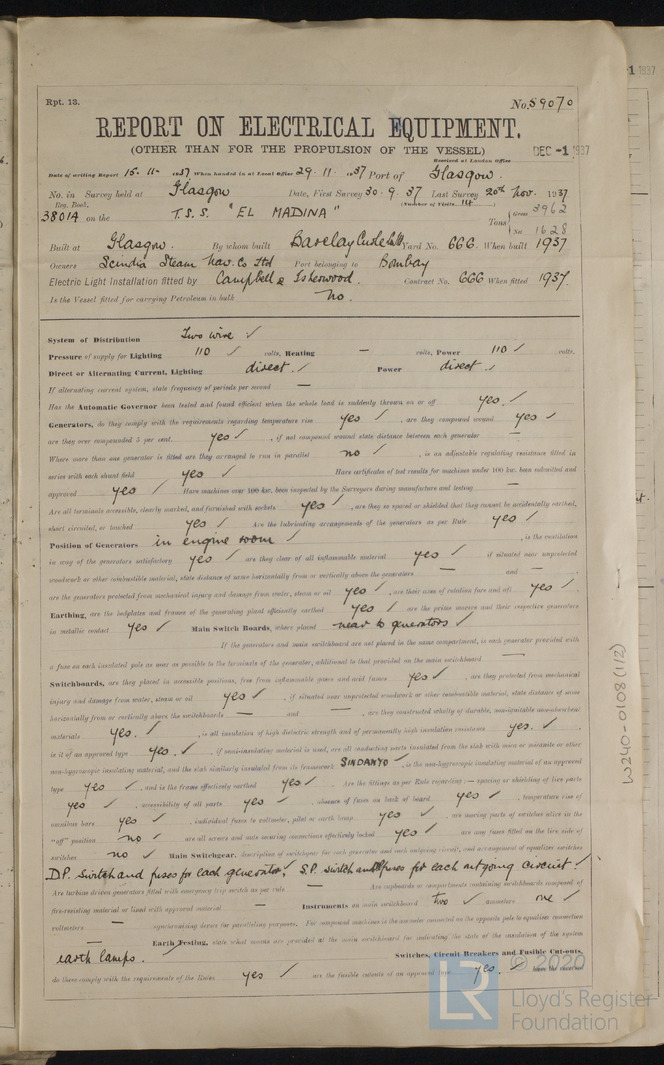 Rpt. 13.
No. 59070
REPORT ON ELECTRICAL EQUIPMENT.
(OTHER THAN FOR THE PROPULSION OF THE VESSEL)
DEC -1 1937
Received at London Office
Date of writing Report 15. 11- 1937 When handed in at Local Office 29. 11. 1937 Port of Glasgow.
No. in Survey held at Glasgow Date, First Survey 30. 9. 37 Last Survey 20th Nov. 1937
Reg. Book. (Number of Visits 14)
38014 on the T.S.S. "EL MADINA" Tons Gross 3962
Net 1628
Built at Glasgow. By whom built Barclay Curle Yard No. 666. When built 1937
Owners Scindia Steam Nav. Co Ltd Port belonging to Bombay
Electric Light Installation fitted by Campbell & Isherwood. Contract No. 666 When fitted 1937.
Is the Vessel fitted for carrying Petroleum in bulk no.
System of Distribution Two wire ✓
Pressure of supply for Lighting 110 ✓ volts, Heating — volts, Power 110 ✓ volts.
Direct or Alternating Current, Lighting direct ✓ Power direct ✓
If alternating current system, state frequency of periods per second —
Has the Automatic Governor been tested and found efficient when the whole load is suddenly thrown on or off yes. ✓
Generators, do they comply with the requirements regarding temperature rise yes ✓, are they compound wound yes ✓
are they over compounded 5 per cent. yes ✓, if not compound wound state distance between each generator —
Where more than one generator is fitted are they arranged to run in parallel no ✓, is an adjustable regulating resistance fitted in
series with each shunt field yes ✓ Have certificates of test results for machines under 100 kw. been submitted and
approved yes ✓ Have machines over 100 kw. been inspected by the Surveyors during manufacture and testing —
Are all terminals accessible, clearly marked, and furnished with sockets yes ✓, are they so spaced or shielded that they cannot be accidentally earthed,
short circuited, or touched yes ✓ Are the lubricating arrangements of the generators as per Rule yes ✓
Position of Generators in engine room ✓, is the ventilation
in way of the generators satisfactory yes ✓ are they clear of all inflammable material yes ✓ if situated near unprotected
woodwork or other combustible material, state distance of same horizontally from or vertically above the generators — and —
are the generators protected from mechanical injury and damage from water, steam or oil yes ✓, are their axes of rotation fore and aft yes ✓
Earthing, are the bedplates and frames of the generating plant efficiently earthed yes ✓ are the prime movers and their respective generators
in metallic contact yes ✓ Main Switch Boards, where placed near to generators ✓
If the generators and main switchboard are not placed in the same compartment, is each generator provided with
a fuse on each insulated pole as near as possible to the terminals of the generator, additional to that provided on the main switchboard —
Switchboards, are they placed in accessible positions, free from inflammable gases and acid fumes yes ✓, are they protected from mechanical
injury and damage from water, steam or oil yes ✓, if situated near unprotected woodwork or other combustible material, state distance of same
horizontally from or vertically above the switchboards — and —, are they constructed wholly of durable, non-ignitable non-absorbent
materials yes. ✓, is all insulation of high dielectric strength and of permanently high insulation resistance yes. ✓
is it of an approved type yes. ✓, if semi-insulating material is used, are all conducting parts insulated from the slab with mica or micanite or other
non-hygroscopic insulating material, and the slab similarly insulated from its framework SINDANYO ✓, is the non-hygroscopic insulating material of an approved
type yes ✓, and is the frame effectively earthed yes ✓ Are the fittings as per Rule regarding:— spacing or shielding of live parts
yes ✓, accessibility of all parts yes ✓, absence of fuses on back of board yes ✓, temperature rise of
omnibus bars yes ✓, individual fuses to voltmeter, pilot or earth lamp yes ✓, are moving parts of switches alive in the
"off" position no ✓ are all screws and nuts securing connections effectively locked yes ✓ are any fuses fitted on the live side of
switches no ✓ Main Switchgear, description of switchgear for each generator and each outgoing circuit, and arrangement of equalizer switches
D.P. switch and fuses for each generator. S.P. switch and fuses for each outgoing circuit. ✓
Are turbine driven generators fitted with emergency trip switch as per rule — Are cupboards or compartments containing switchboards composed of
fire-resisting material or lined with approved material — Instruments on main switchboard two ✓ ammeters one ✓
voltmeters — synchronising device for paralleling purposes. For compound machines is the ammeter connected on the opposite pole to equaliser connection
— Earth Testing, state what means are provided at the main switchboard for indicating the state of the insulation of the system
earth lamps. ✓ Switches, Circuit Breakers and Fusible Cut-outs,
do these comply with the requirements of the Rules yes ✓ are the fusible cutouts of an approved type yes. ✓ have the reversed
W240-0108 (1/2)
LR © 2020
Lloyd's Register
Foundation